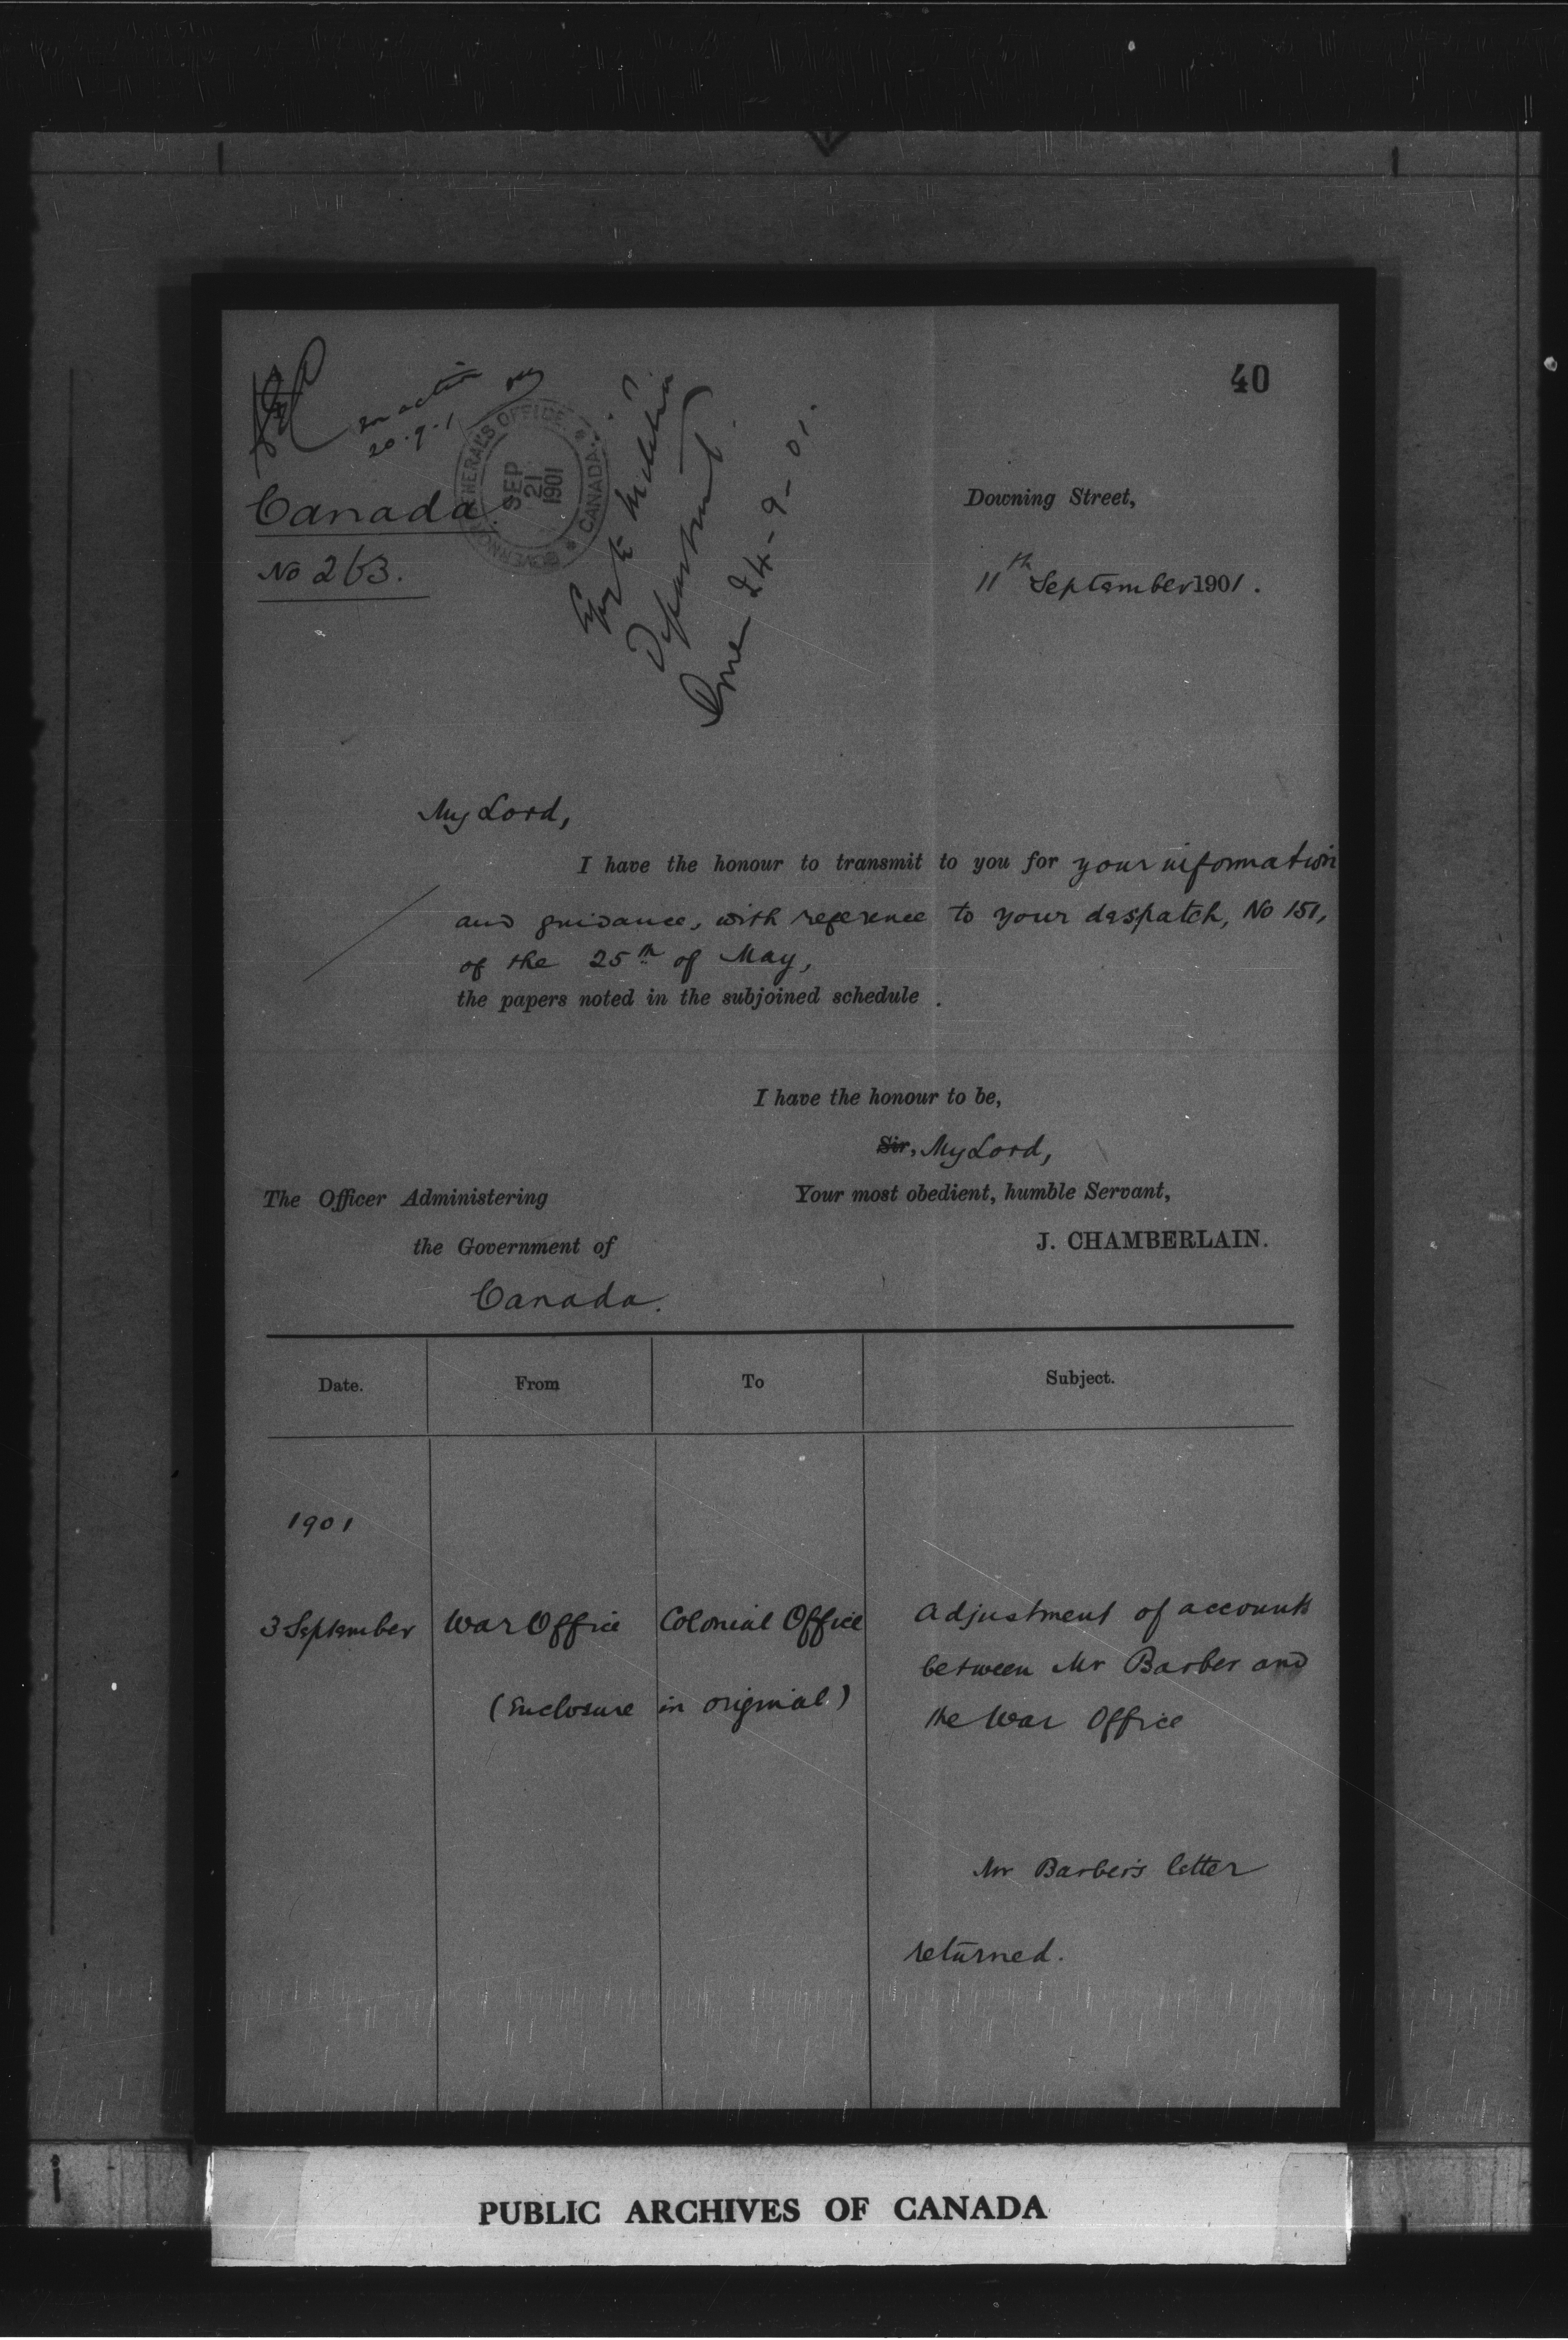 40
for action
20.9.1
GOVERNOR GENERAL'S OFFICE
CANADA
SEP
21
1901
Canada.
No 263.
Copy to Militia
Department.
Done 24-9-01.
Downing Street,
11th September 1901.
My Lord,
I have the honour to transmit to you for your information
and guidance, with reference to your despatch, No 151,
of the 25th of May,
the papers noted in the subjoined schedule.
I have the honour to be,
Sir, My Lord,
Your most obedient, humble Servant,
J. CHAMBERLAIN.
The Officer Administering
the Government of
Canada.
Date. From To Subject.
1901
3 September War Office Colonial Office Adjustment of accounts
between Mr Barber and
(Enclosure in original) the War Office
Mr Barber's letter
returned.
PUBLIC ARCHIVES OF CANADA